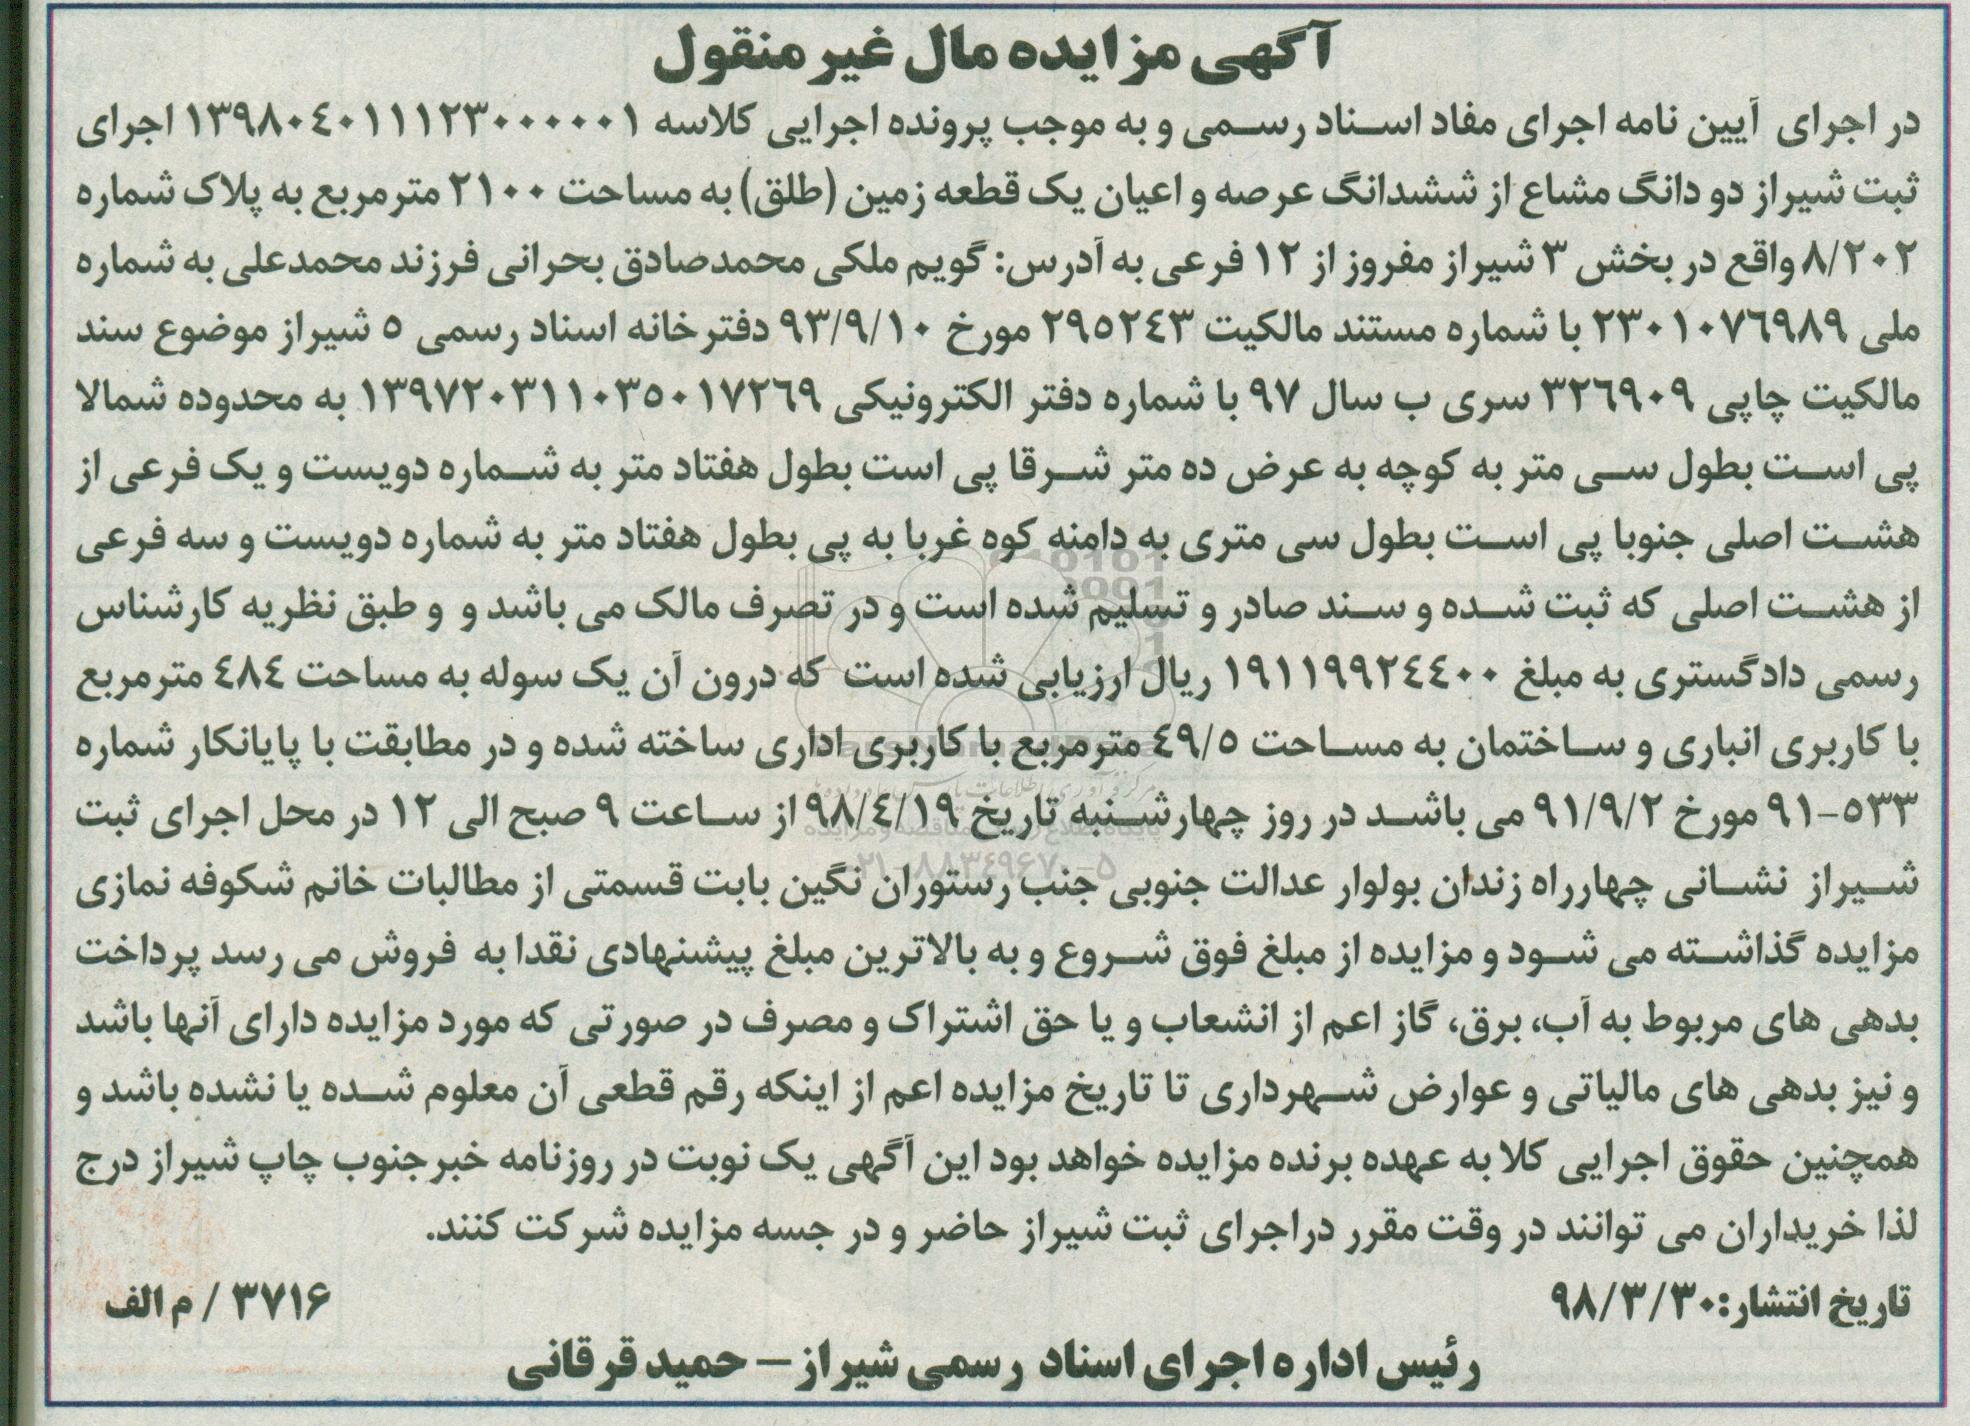 آگهی مزایده مال غیر منقول
در اجرای آیین نامه اجرای مفاد اسناد رسمی و به موجب پرونده اجرایی کلاسه ۱۳۹۸۰۴۰۱۱۱۲۳۰۰۰۰۰۱ اجرای
ثبت شیراز دو دانگ مشاع از ششدانگ عرصه و اعیان یک قطعه زمین (طلق) به مساحت ۲۱۰۰ مترمربع به پلاک شماره
۸/۲۰۲ واقع در بخش ۳ شیراز مفروز از ۱۲ فرعی به آدرس: گویم ملکی محمدصادق بحرانی فرزند محمدعلی به شماره
ملی ۲۳۰۱۰۷۶۹۸۹ با شماره مستند مالکیت ۲۹۵۲۴۳ مورخ ۹۳/۹/۱۰ دفترخانه اسناد رسمی ۵ شیراز موضوع سند
مالکیت چاپی ۳۲۶۹۰۹ سری ب سال ۹۷ با شماره دفتر الکترونیکی ۱۳۹۷۲۰۳۱۱۰۳۵۰۱۷۲۶۹ به محدوده شمالا
پی است بطول سی متر به کوچه به عرض ده متر شرقا پی است بطول هفتاد متر به شماره دویست و یک فرعی از
هشت اصلی جنوبا پی است بطول سی متری به دامنه کوه غربا به پی بطول هفتاد متر به شماره دویست و سه فرعی
از هشت اصلی که ثبت شده و سند صادر و تسلیم شده است و در تصرف مالک می باشد و و طبق نظریه کارشناس
رسمی دادگستری به مبلغ ۱۹۱۱۹۹۲۴۴۰۰ ریال ارزیابی شده است که درون آن یک سوله به مساحت ۴۸۴ مترمربع
با کاربری انباری و ساختمان به مساحت ۴۹/۵ مترمربع با کاربری اداری ساخته شده و در مطابقت با پایانکار شماره
۹۱-۵۳۳ مورخ ۹۱/۹/۲ می باشد در روز چهارشنبه تاریخ ۹۸/۴/۱۹ از ساعت ۹ صبح الی ۱۲ در محل اجرای ثبت
شیراز نشانی چهارراه زندان بولوار عدالت جنوبی جنب رستوران نگین بابت قسمتی از مطالبات خانم شکوفه نمازی
مزایده گذاشته می شود و مزایده از مبلغ فوق شروع و به بالاترین مبلغ پیشنهادی نقدا به فروش می رسد پرداخت
بدهی های مربوط به آب، برق، گاز اعم از انشعاب و یا حق اشتراک و مصرف در صورتی که مورد مزایده دارای آنها باشد
و نیز بدهی های مالیاتی و عوارض شهرداری تا تاریخ مزایده اعم از اینکه رقم قطعی آن معلوم شده یا نشده باشد و
همچنین حقوق اجرایی کلا به عهده برنده مزایده خواهد بود این آگهی یک نوبت در روزنامه خبرجنوب چاپ شیراز درج
لذا خریداران می توانند در وقت مقرر دراجرای ثبت شیراز حاضر و در جسه مزایده شرکت کنند.
تاریخ انتشار:۹۸/۳/۳۰
۳۷۱۶ / م الف
رئیس اداره اجرای اسناد رسمی شیراز – حمید قرقانی
۰۲۱-۸۸۳۴۹۶۷۰-۵